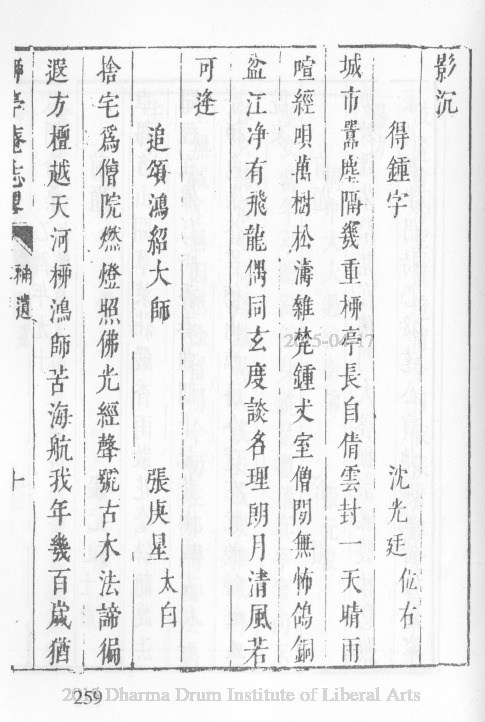 影沉
得鍾字 沈光廷 位右
城市囂塵隔幾重柳亭長自倩雲封一天晴雨
喧經唄萬樹松濤雜梵鍾丈室僧閒無怖鴿銅
盆江净有飛龍偶同玄度談名理朗月清風若
可逢
追頌鴻紹大師 張庚星 太白
捨宅爲僧院燃燈照佛光經聲號古木法諦徧
遐方檀越天河柳鴻師苦海航我年幾百歲猶
柳亭庵志畧 補遺 十
2015-04-17
259
2019 Dharma Drum Institute of Liberal Arts